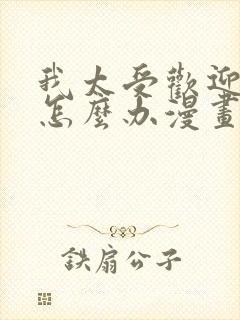 我太受歡迎
怎麼办漫畫
鉄扇公子